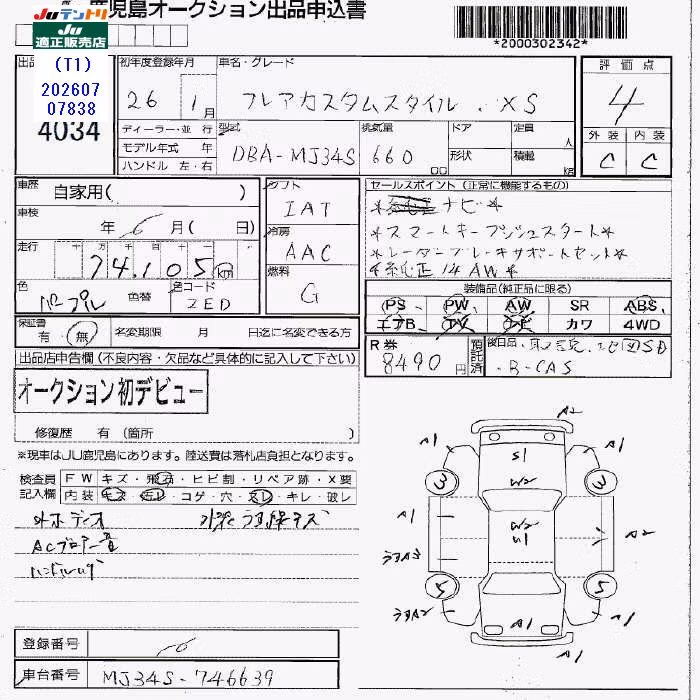 鹿児島オークション出品申込書
JUテントリ
JU適正販売店
*2000302342*
(T1)
202607
07838
4034
初年度登録年月
26 1月
車名・グレード
フレアカスタムスタイル . XS
評価点
4
外装 内装
C C
ディーラー・並行
モデル年式 年
ハンドル 左・右
型式
DBA-MJ34S
排気量
660
ドア
形状
定員 人
積載 kg
車歴
自家用( )
車検
年 6月( 日)
走行
74,105km
色
パープル
色替
色コード
ZED
シフト
IAT
冷房
AAC
燃料
G
セールスポイント(正常に機能するもの)
ナビ*
*スマートキープッシュスタート*
*レーダーブレーキサポートセット*
*純正14AW*
装備品(純正品に限る)
PS PW AW SR ABS
エアB TV ナビ カワ 4WD
保証書
有・無
名変期限 月 日迄に名変できる方
R券
8490円
預託済
後日品.
・B-CAS
出品店申告欄(不良内容・欠品など具体的に記入して下さい)
オークション初デビュー
修復歴 有(箇所 )
*現車はJU鹿児島にあります。陸送費は落札店負担となります。
検査員
記入欄
FW キズ・飛石・ヒビ割・リペア跡・X要
内装 キズ・汚レ・コゲ・穴・スレ・キレ・破レ
外ホディオ
ACブロアー音
A2
A1 S1 A1
3 W2 3
A1 W2 U1 A2
ラヨA3
5 5
ラヨA2 A1 A1
A1
登録番号
車台番号
MJ34S-746639